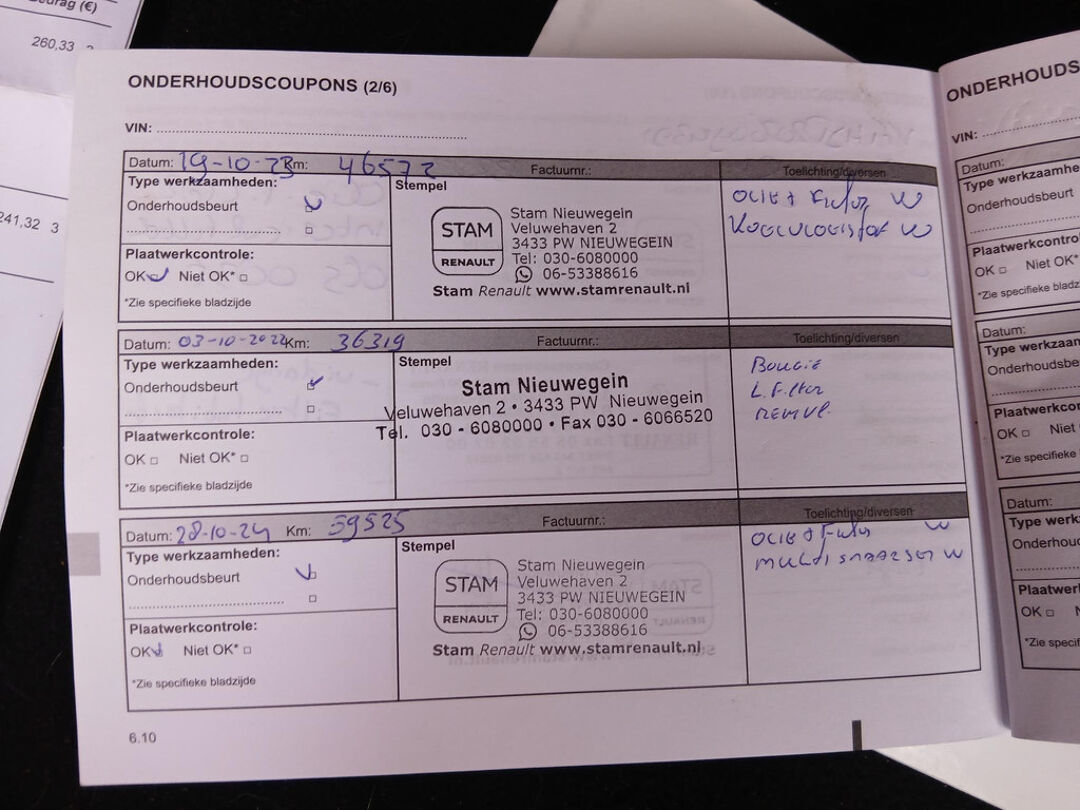 260,33
241,32 3
ONDERHOUDSCOUPONS (2/6)
VIN:
Datum: 19-10-23 Km: 46572 Factuurnr.: Toelichting/diversen
Type werkzaamheden:
Onderhoudsbeurt
Plaatwerkcontrole:
OK Niet OK*
*Zie specifieke bladzijde
Stempel
STAM
RENAULT
Stam Nieuwegein
Veluwehaven 2
3433 PW NIEUWEGEIN
Tel: 030-6080000
06-53388616
Stam Renault www.stamrenault.nl
OLIE + Filter W
Koelvloeistof W
Datum: 03-10-2022 Km: 36319 Factuurnr.: Toelichting/diversen
Type werkzaamheden:
Onderhoudsbeurt
Plaatwerkcontrole:
OK Niet OK*
*Zie specifieke bladzijde
Stempel
Stam Nieuwegein
Veluwehaven 2 • 3433 PW Nieuwegein
Tel. 030 - 6080000 • Fax 030 - 6066520
Bougie
L. Filter
REMVl.
Datum: 28-10-24 Km: 59525 Factuurnr.: Toelichting/diversen
Type werkzaamheden:
Onderhoudsbeurt
Plaatwerkcontrole:
OK Niet OK*
*Zie specifieke bladzijde
Stempel
STAM
RENAULT
Stam Nieuwegein
Veluwehaven 2
3433 PW NIEUWEGEIN
Tel: 030-6080000
06-53388616
Stam Renault www.stamrenault.nl
OLIE + Filter W
multisnaarset W
6.10
ONDERHOUDS
VIN:
Datum:
Type werkzaamhe
Onderhoudsbeurt
Plaatwerkcontro
OK Niet OK*
*Zie specifieke bladz
Datum:
Type werkzaam
Onderhoudsbe
Plaatwerkcont
OK Niet
*Zie specifieke
Datum:
Type werk
Onderhou
Plaatwer
OK
*Zie specif